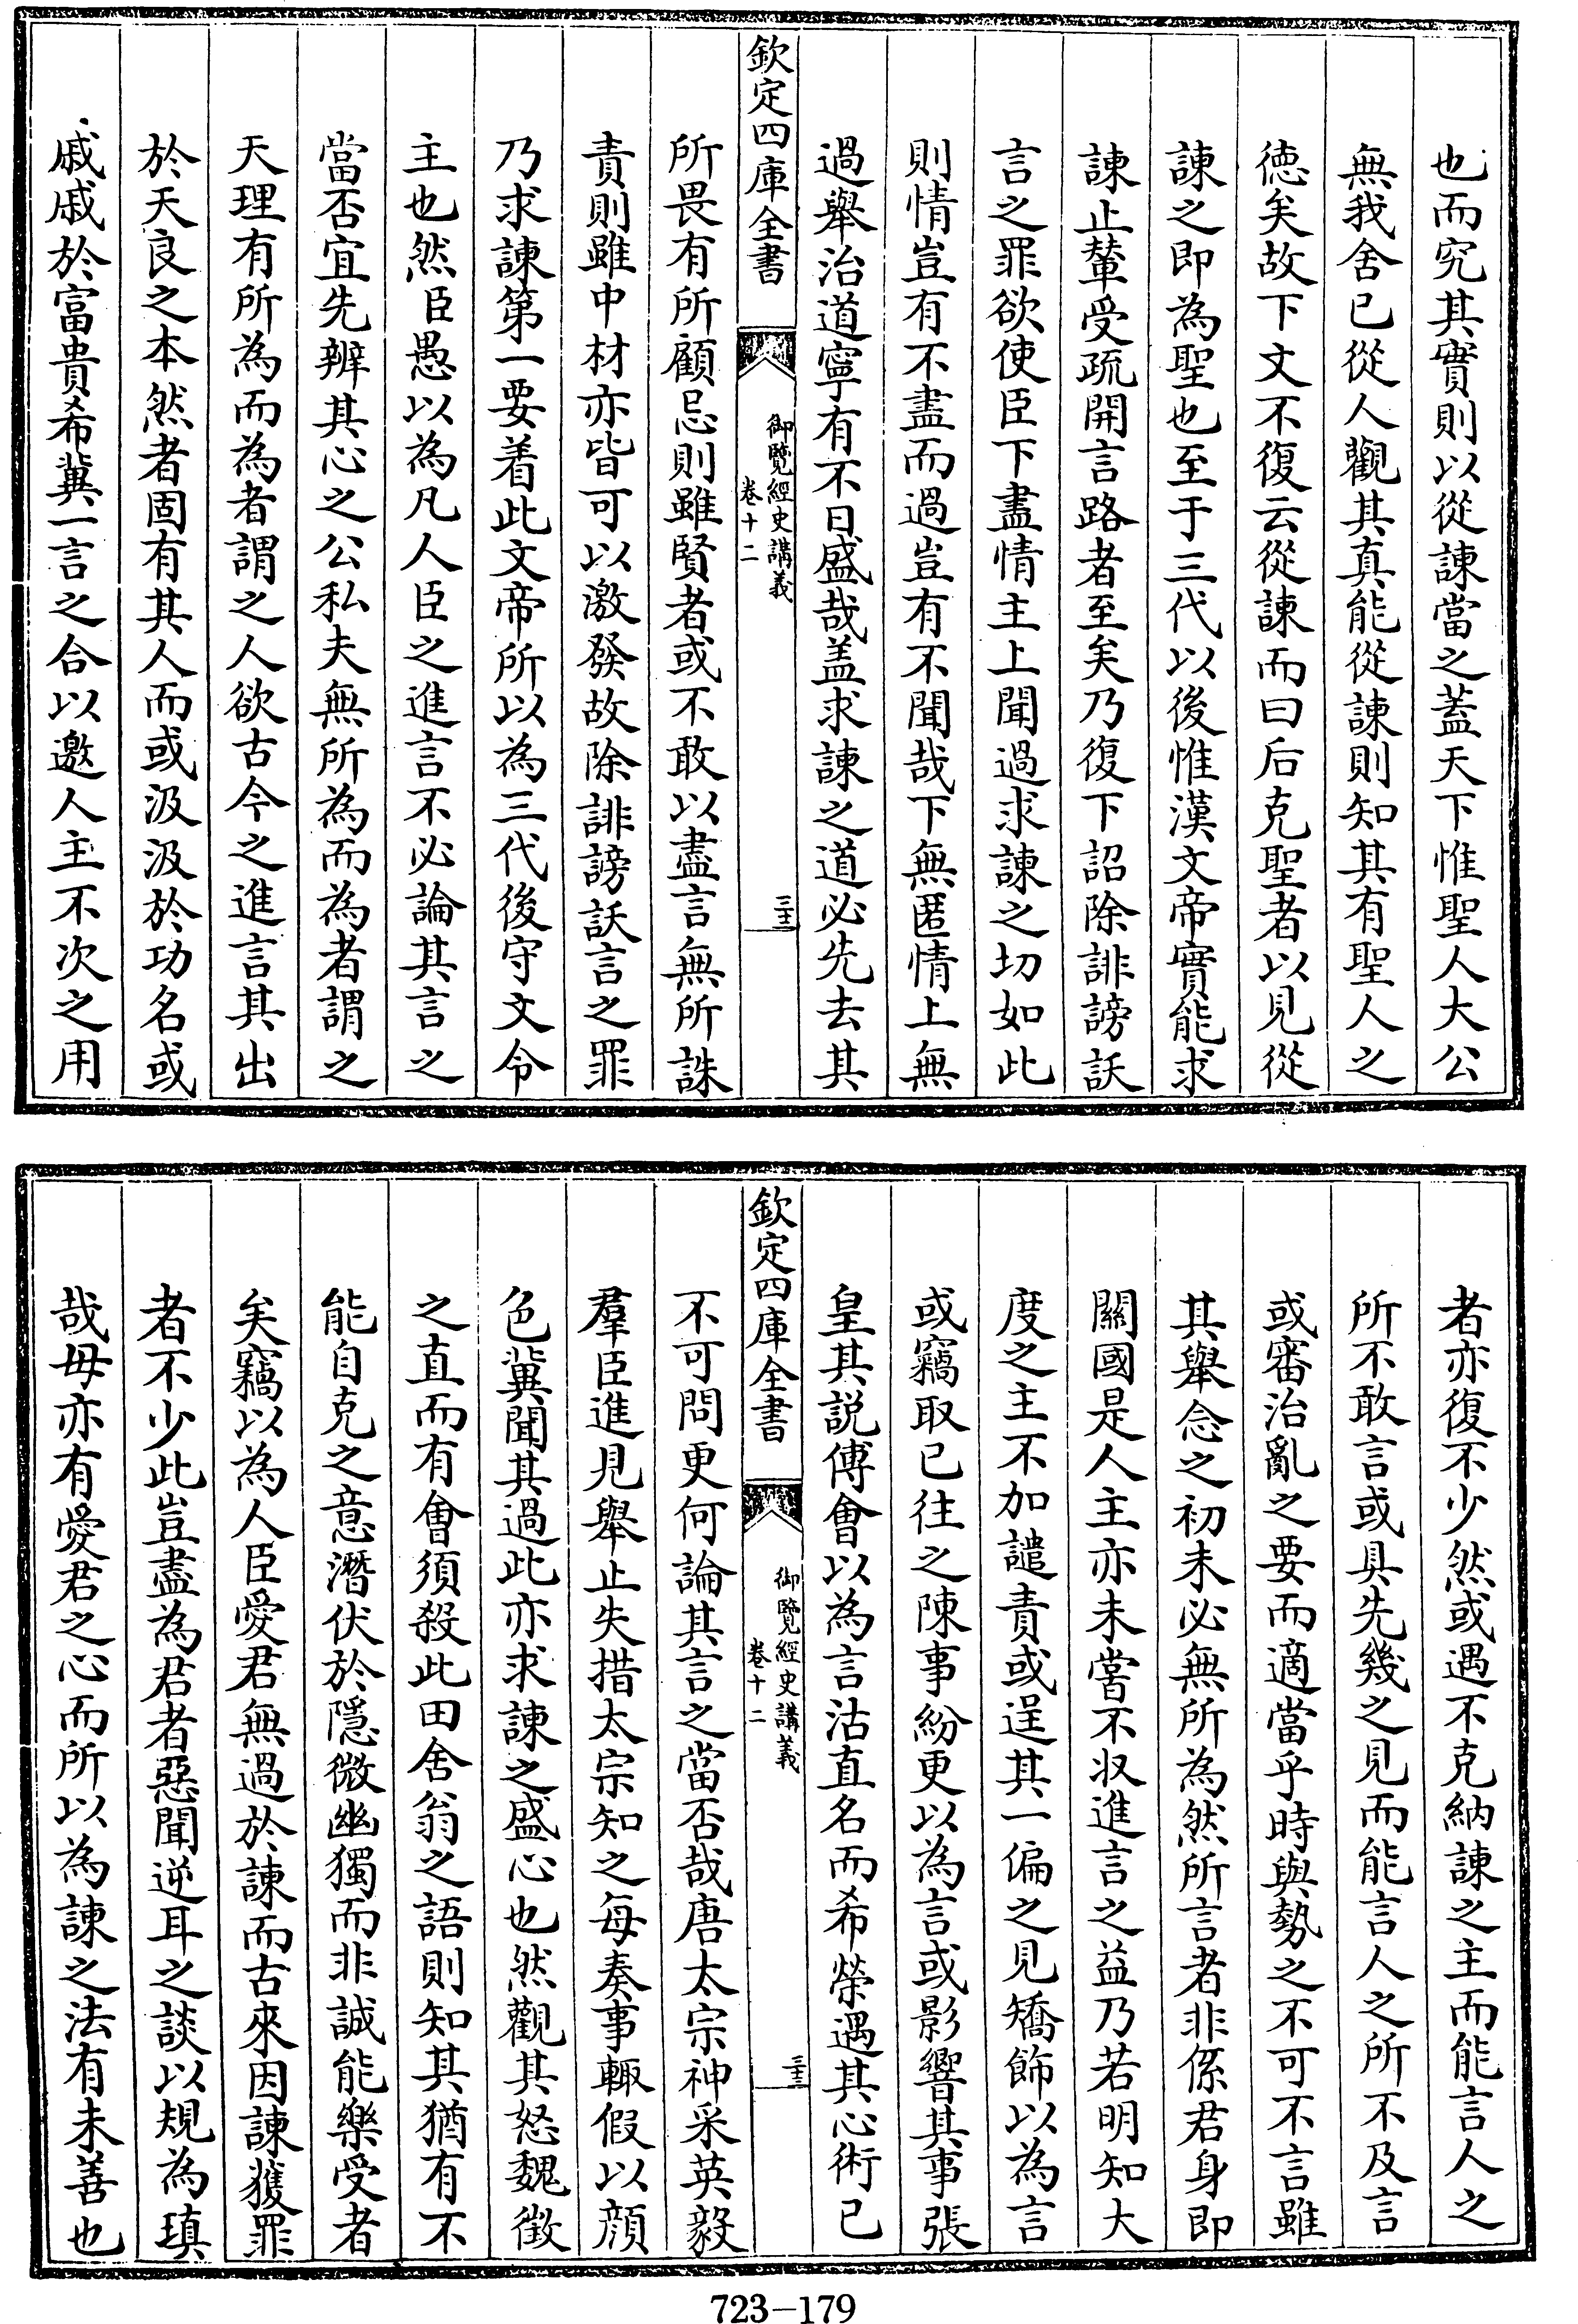 也而究其實則以從諫當之蓋天下惟聖人大公
無我舍已從人觀其真能從諫則知其有聖人之
徳矣故下文不復云從諫而曰后克聖者以見從
諫之即為聖也至于三代以後惟漢文帝實能求
諫止輦受疏開言路者至矣乃復下詔除誹謗訞
言之罪欲使臣下盡情主上聞過求諫之切如此
則情豈有不盡而過豈有不聞哉下無匿情上無
過舉治道寧有不日盛哉盖求諫之道必先去其
欽定四庫全書
御覽經史講義
卷十二
三十二
所畏有所顧忌則雖賢者或不敢以盡言無所誅
責則雖中材亦皆可以激發故除誹謗訞言之罪
乃求諫第一要着此文帝所以為三代後守文令
主也然臣愚以為凡人臣之進言不必論其言之
當否宜先辨其心之公私夫無所為而為者謂之
天理有所為而為者謂之人欲古今之進言其出
於天良之本然者固有其人而或汲汲於功名或
戚戚於富貴希冀一言之合以邀人主不次之用
者亦復不少然或遇不克納諫之主而能言人之
所不敢言或具先幾之見而能言人之所不及言
或審治亂之要而適當乎時與勢之不可不言雖
其舉念之初未必無所為然所言者非係君身即
關國是人主亦未嘗不収進言之益乃若明知大
度之主不加譴責或逞其一偏之見矯飾以為言
或竊取已往之陳事紛更以為言或影響其事張
皇其説傅會以為言沽直名而希榮遇其心術已
欽定四庫全書
御覽經史講義
卷十二
三十三
不可問更何論其言之當否哉唐太宗神采英毅
羣臣進見舉止失措太宗知之每奏事輙假以顔
色冀聞其過此亦求諫之盛心也然觀其怒魏徵
之直而有會須殺此田舍翁之語則知其猶有不
能自克之意潛伏於隱微幽獨而非誠能樂受者
矣竊以為人臣愛君無過於諫而古來因諫獲罪
者不少此豈盡為君者惡聞逆耳之談以規為瑱
哉毋亦有愛君之心而所以為諫之法有未善也
723-179